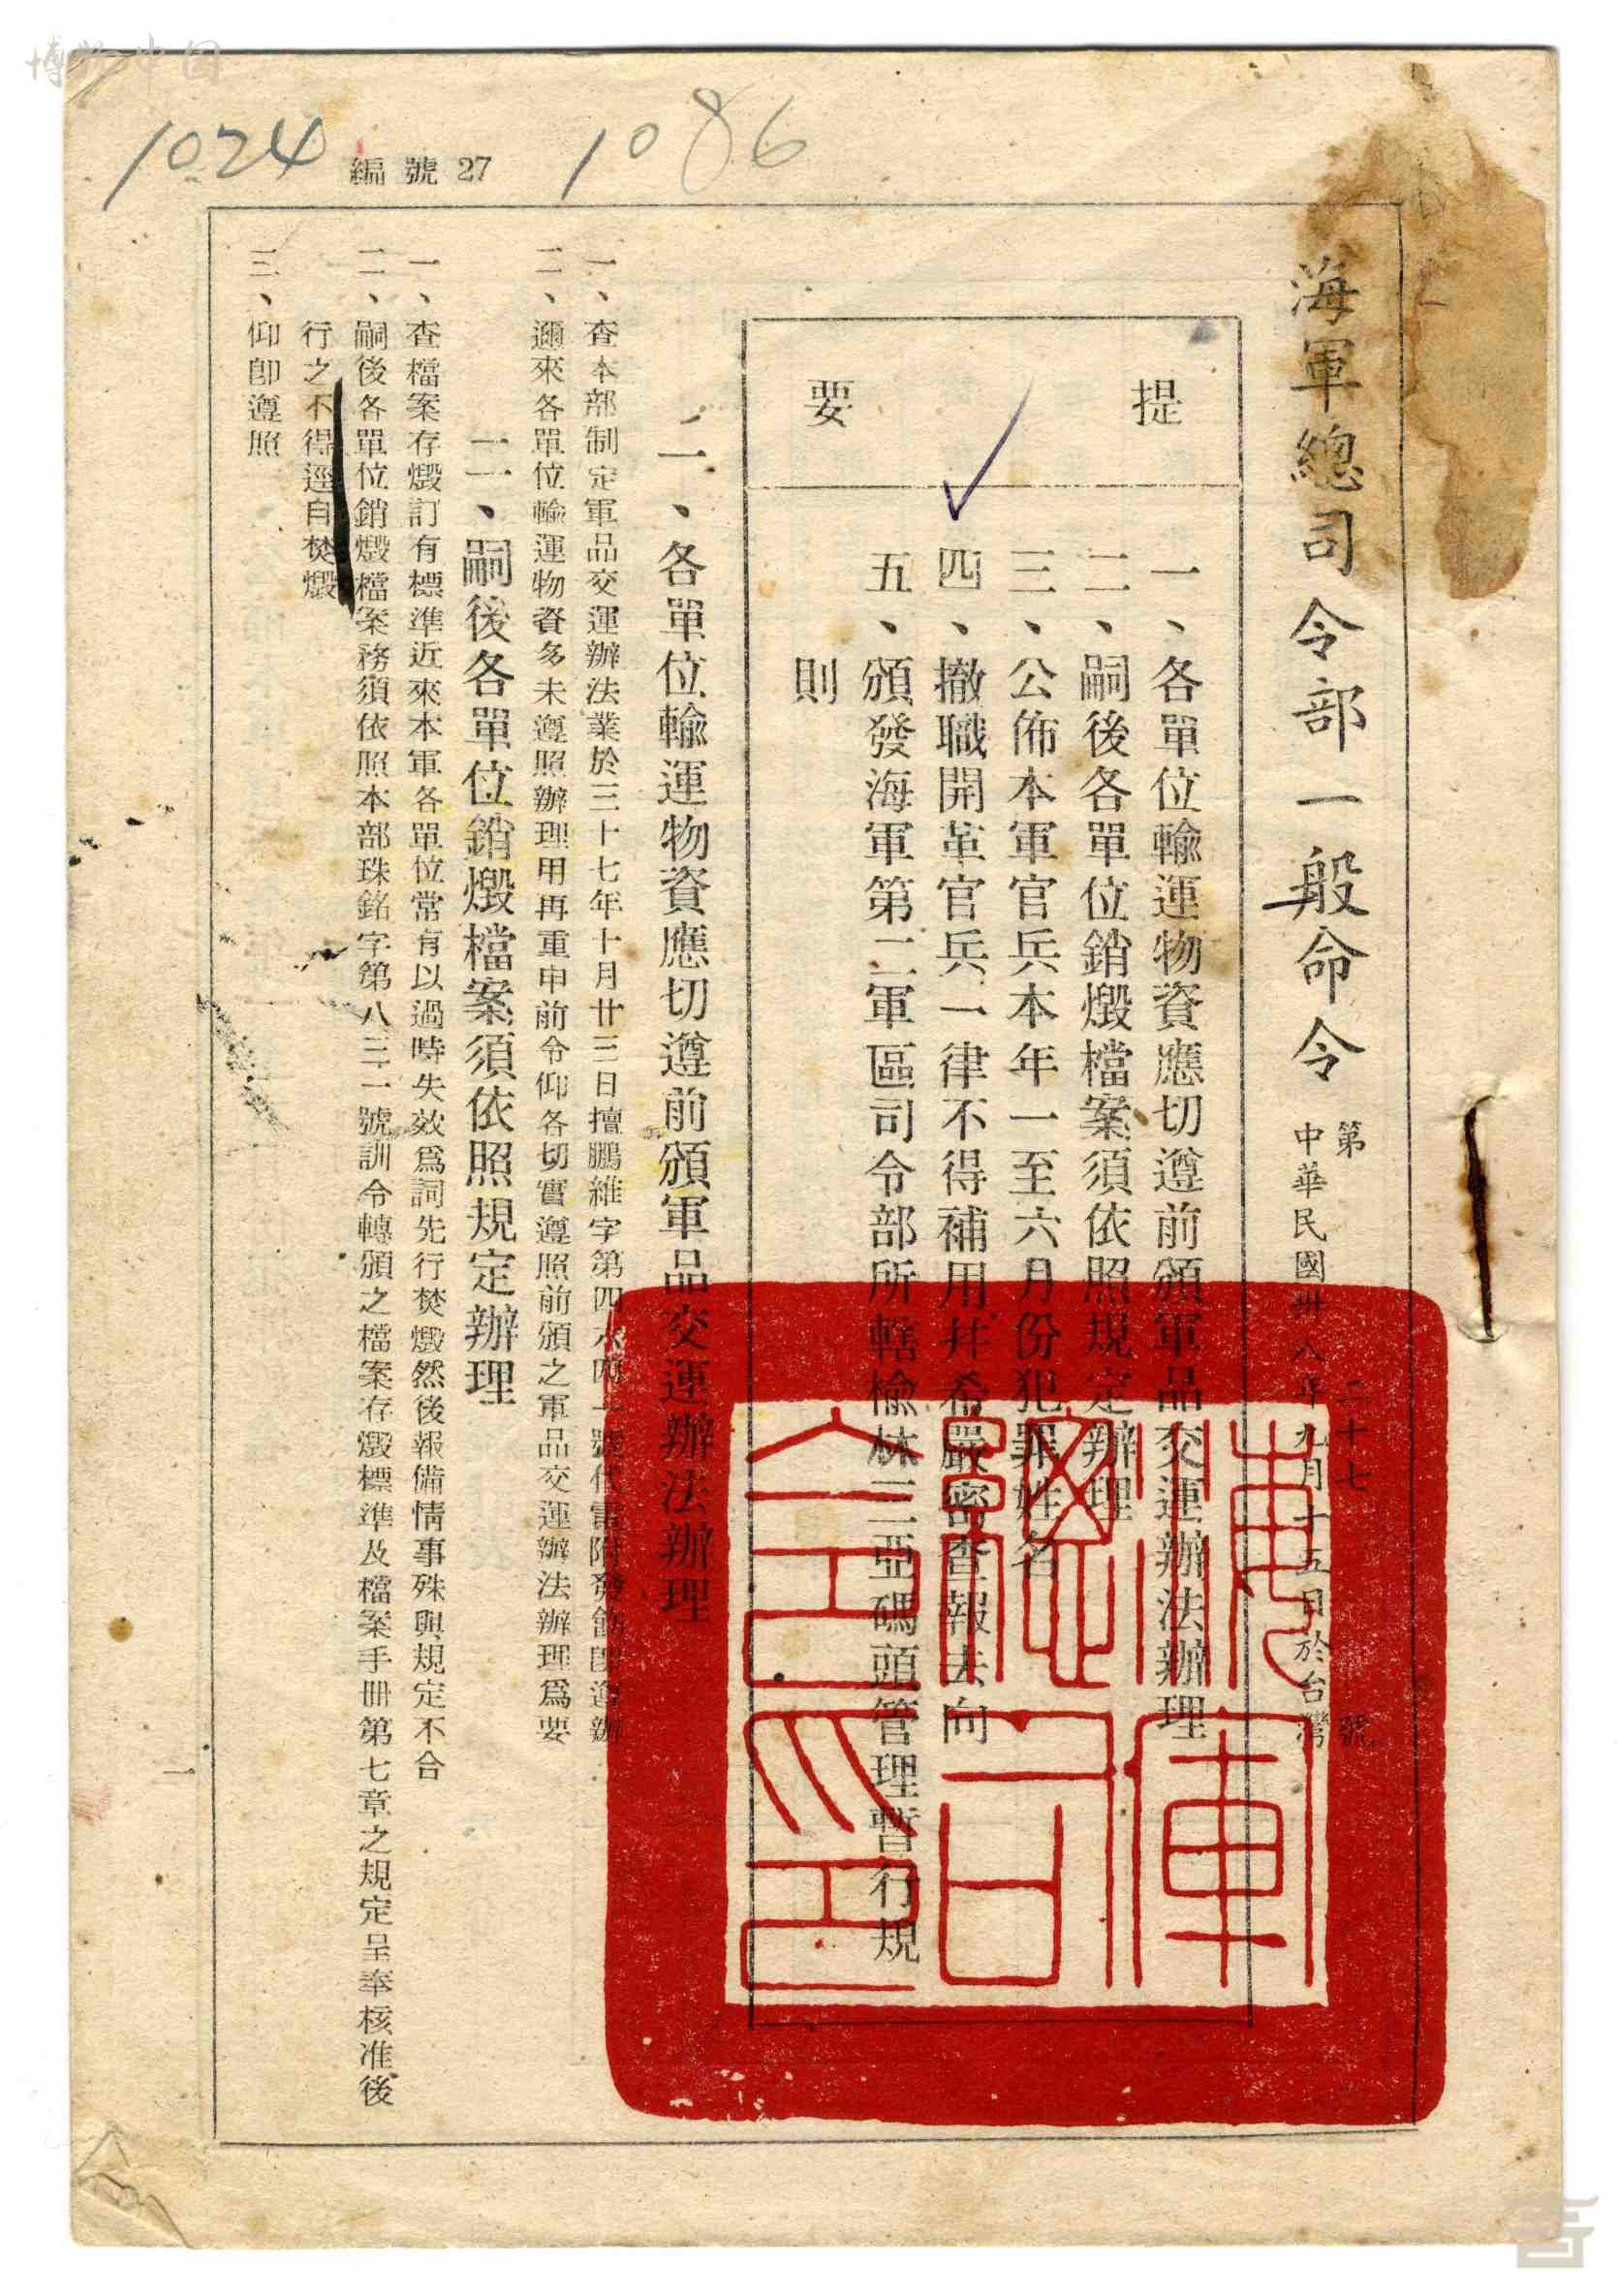 博物中国
1024
編號27
1086
海軍總司令部一般命令
第二十七號
中華民國卅八年九月十五日於台灣
提要
一、各單位輸運物資應切遵前頒軍品交運辦法辦理
二、嗣後各單位銷燬檔案須依照規定辦理
三、公佈本軍官兵本年一至六月份犯罪姓名
四、撤職開革官兵一律不得補用幷希嚴密查報去向
五、頒發海軍第二軍區司令部所轄榆林三亞碼頭管理暫行規
則
一、各單位輸運物資應切遵前頒軍品交運辦法辦理
一、查本部制定軍品交運辦法業於三十七年十月廿三日擅鵬維字第四六四一號代電附發飭卽遵辦
二、邇來各單位輸運物資多未遵照辦理用再重申前令仰各切實遵照前頒之軍品交運辦法辦理爲要
二、嗣後各單位銷燬檔案須依照規定辦理
一、查檔案存燬訂有標準近來本軍各單位常有以過時失效爲詞先行焚燬然後報備情事殊與規定不合
二、嗣後各單位銷燬檔案務須依照本部珠銘字第八三一號訓令轉頒之檔案存燬標準及檔案手册第七章之規定呈奉核准後
行之不得逕自焚燬
三、仰卽遵照
一
海軍總司令印